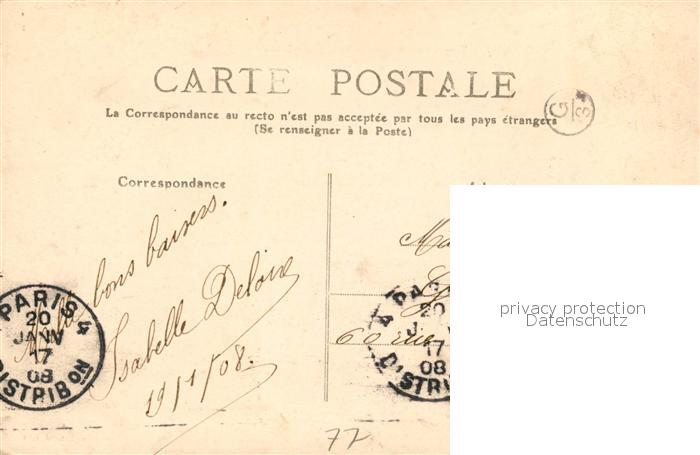 CARTE POSTALE
La Correspondance au recto n'est pas acceptée par tous les pays étrangers
(Se renseigner à la Poste)
G S
Correspondance
bons baisers.
Isabelle Deloire
19/1/08.
PARIS 4
20
JANV
17
08
DISTRIBON
Ma
60 rue
PA
4
20
J
17
08
DISTRI
77
privacy protection
Datenschutz